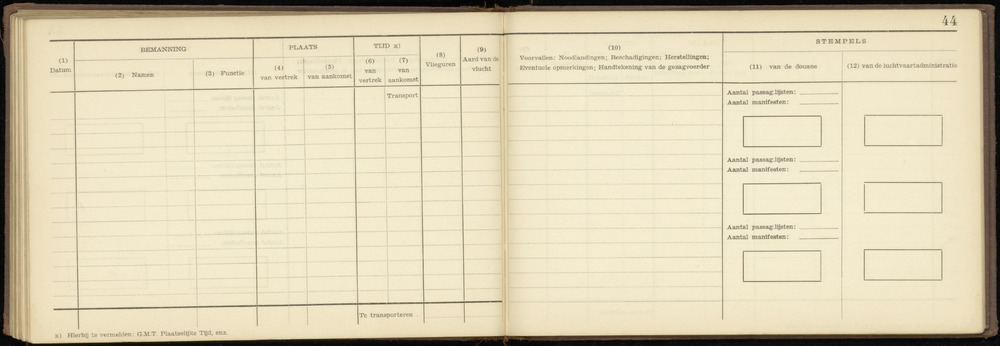 44
BEMANNING
PLAATS
TIJD x)
STEMPELS
(1) Datum
(2) Namen
(3) Functie
(4) van vertrek
(5) van aankomst
(6) van vertrek
(7) van aankomst
(8) Vlieguren
(9) Aard van de vlucht
(10)
Voorvallen: Noodlandingen; Beschadigingen; Herstellingen;
Eventuele opmerkingen; Handtekening van de gezagvoerder
(11) van de douane
(12) van de luchtvaartadministratie
Transport
Aantal passag.lijsten:
Aantal manifesten:
Aantal passag.lijsten:
Aantal manifesten:
Aantal passag.lijsten:
Aantal manifesten:
Te transporteren
x) Hierbij te vermelden: G.M.T. Plaatselijke Tijd, enz.